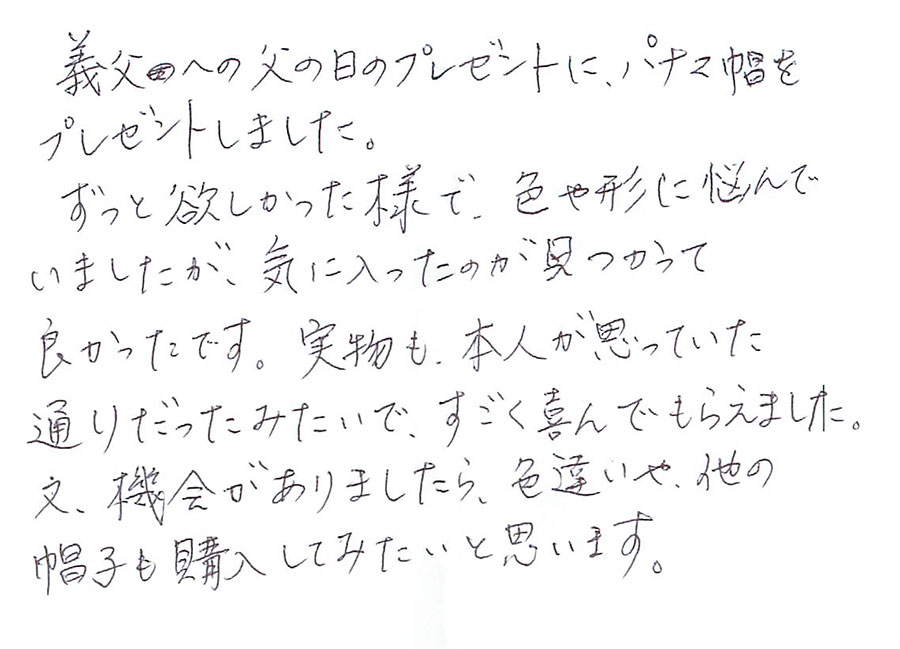 義父への父の日のプレゼントに、パナマ帽を
プレゼントしました。
ずっと欲しかった様で、色や形に悩んで
いましたが、気に入ったのが見つかって
良かったです。実物も、本人が思っていた
通りだったみたいで、すごく喜んでもらえました。
又、機会がありましたら、色違いや、他の
帽子も購入してみたいと思います。